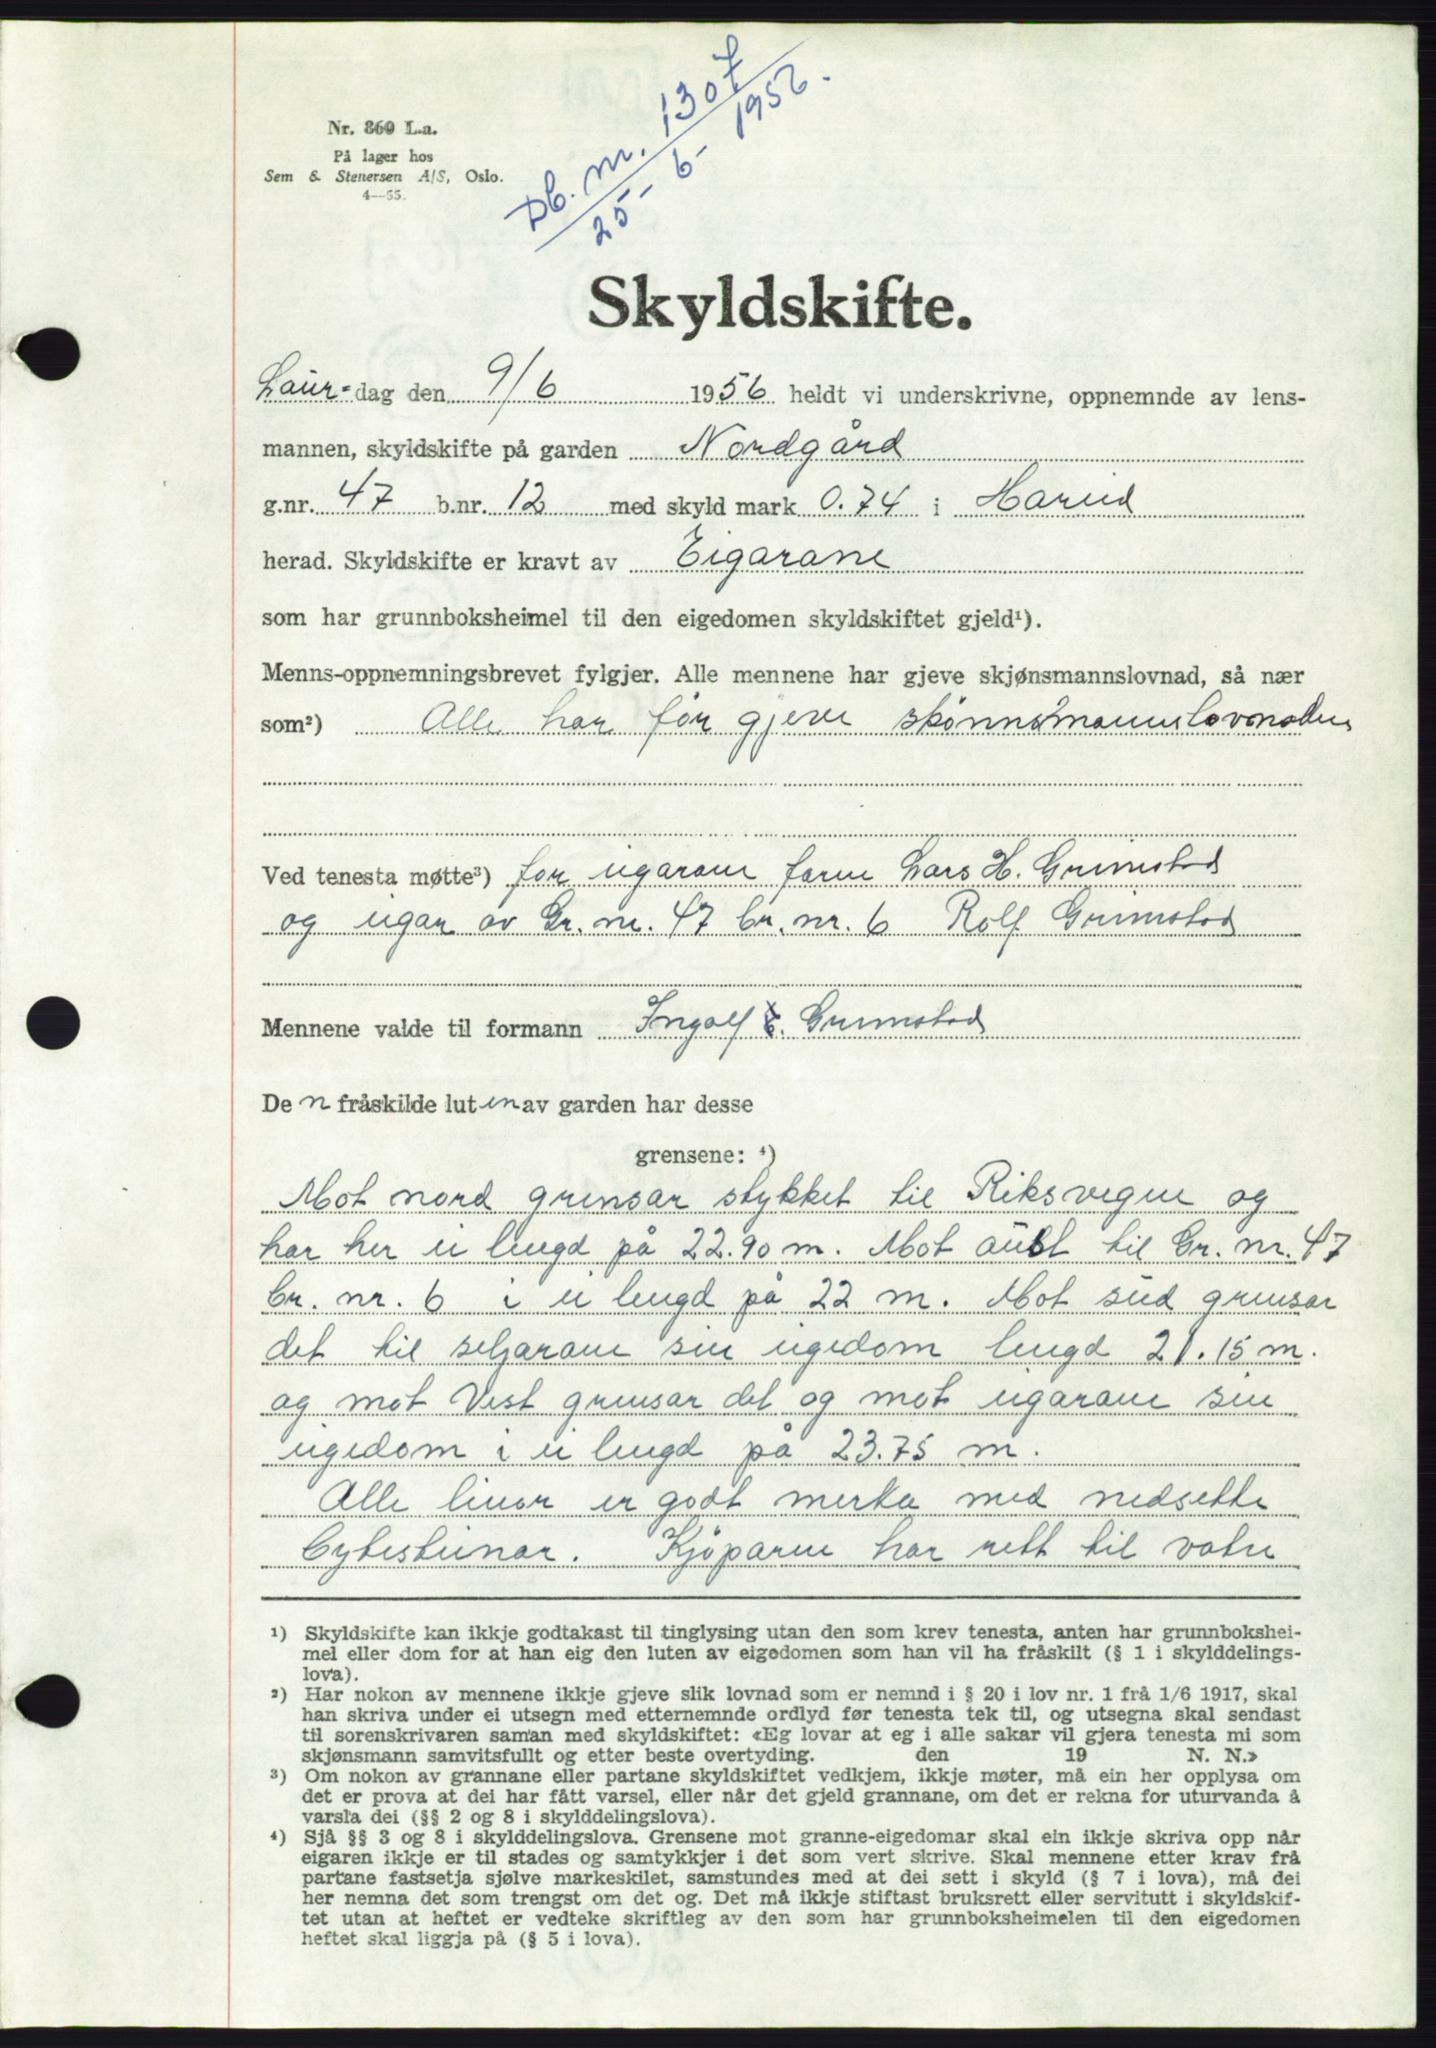 Db. nr. 1307
25-6-1956.
Nr. 860 L.a.
På lager hos
Sem & Stenersen A/S, Oslo.
4—55.
Skyldskifte.
Laur-dag den 9/6 1956 heldt vi underskrivne, oppnemnde av lens-
mannen, skyldskifte på garden Nordgård
g.nr. 47 b.nr. 12 med skyld mark 0.74 i Hareid
herad. Skyldskifte er kravt av Eigarane
som har grunnboksheimel til den eigedomen skyldskiftet gjeld¹).
Menns-oppnemningsbrevet fylgjer. Alle mennene har gjeve skjønsmannslovnad, så nær
som²) Alle har før gjeve skønnsmannslovnaden
Ved tenesta møtte³) for eigarane farne Lars H. Grimstad
og eigar av Gr. nr. 47 br. nr. 6 Rolf Grimstad
Mennene valde til formann Ingolf E. Grimstad
De n fråskilde lut en av garden har desse
grensene: ⁴)
Mot nord grensar stykket til Riksvegen og
har her ei lengd på 22.90 m. Mot aust til Gr. nr. 47
br. nr. 6 i ei lengd på 22 m. Mot sud grensar
det til seljarane sin eigedom lengd 21.15 m.
og mot Vest grensar det og mot eigarane sin
eigedom i ei lengd på 23.75 m.
Alle linor er godt merka med nedsette
bytesteinar. Kjøparen har rett til vatn
¹) Skyldskifte kan ikkje godtakast til tinglysing utan den som krev tenesta, anten har grunnbokshei-
mel eller dom for at han eig den luten av eigedomen som han vil ha fråskilt (§ 1 i skylddelings-
lova).
²) Har nokon av mennene ikkje gjeve slik lovnad som er nemnd i § 20 i lov nr. 1 frå 1/6 1917, skal
han skriva under ei utsegn med etternemnde ordlyd før tenesta tek til, og utsegna skal sendast
til sorenskrivaren saman med skyldskiftet: «Eg lovar at eg i alle sakar vil gjera tenesta mi som
skjønsmann samvitsfullt og etter beste overtyding. den 19 N. N.»
³) Om nokon av grannane eller partane skyldskiftet vedkjem, ikkje møter, må ein her opplysa om
det er prova at dei har fått varsel, eller når det gjeld grannane, om det er rekna for uturvanda å
varsla dei (§§ 2 og 8 i skylddelingslova).
⁴) Sjå §§ 3 og 8 i skylddelingslova. Grensene mot granne-eigedomar skal ein ikkje skriva opp når
eigaren ikkje er til stades og samtykkjer i det som vert skrive. Skal mennene etter krav frå
partane fastsetja sjølve markeskilet, samstundes med at dei sett i skyld (§ 7 i lova), må dei
her nemna det som trengst om det og. Det må ikkje stiftast bruksrett eller servitutt i skyldskif-
tet utan at heftet er vedteke skriftleg av den som har grunnboksheimelen til den eigedomen
heftet skal liggja på (§ 5 i lova).